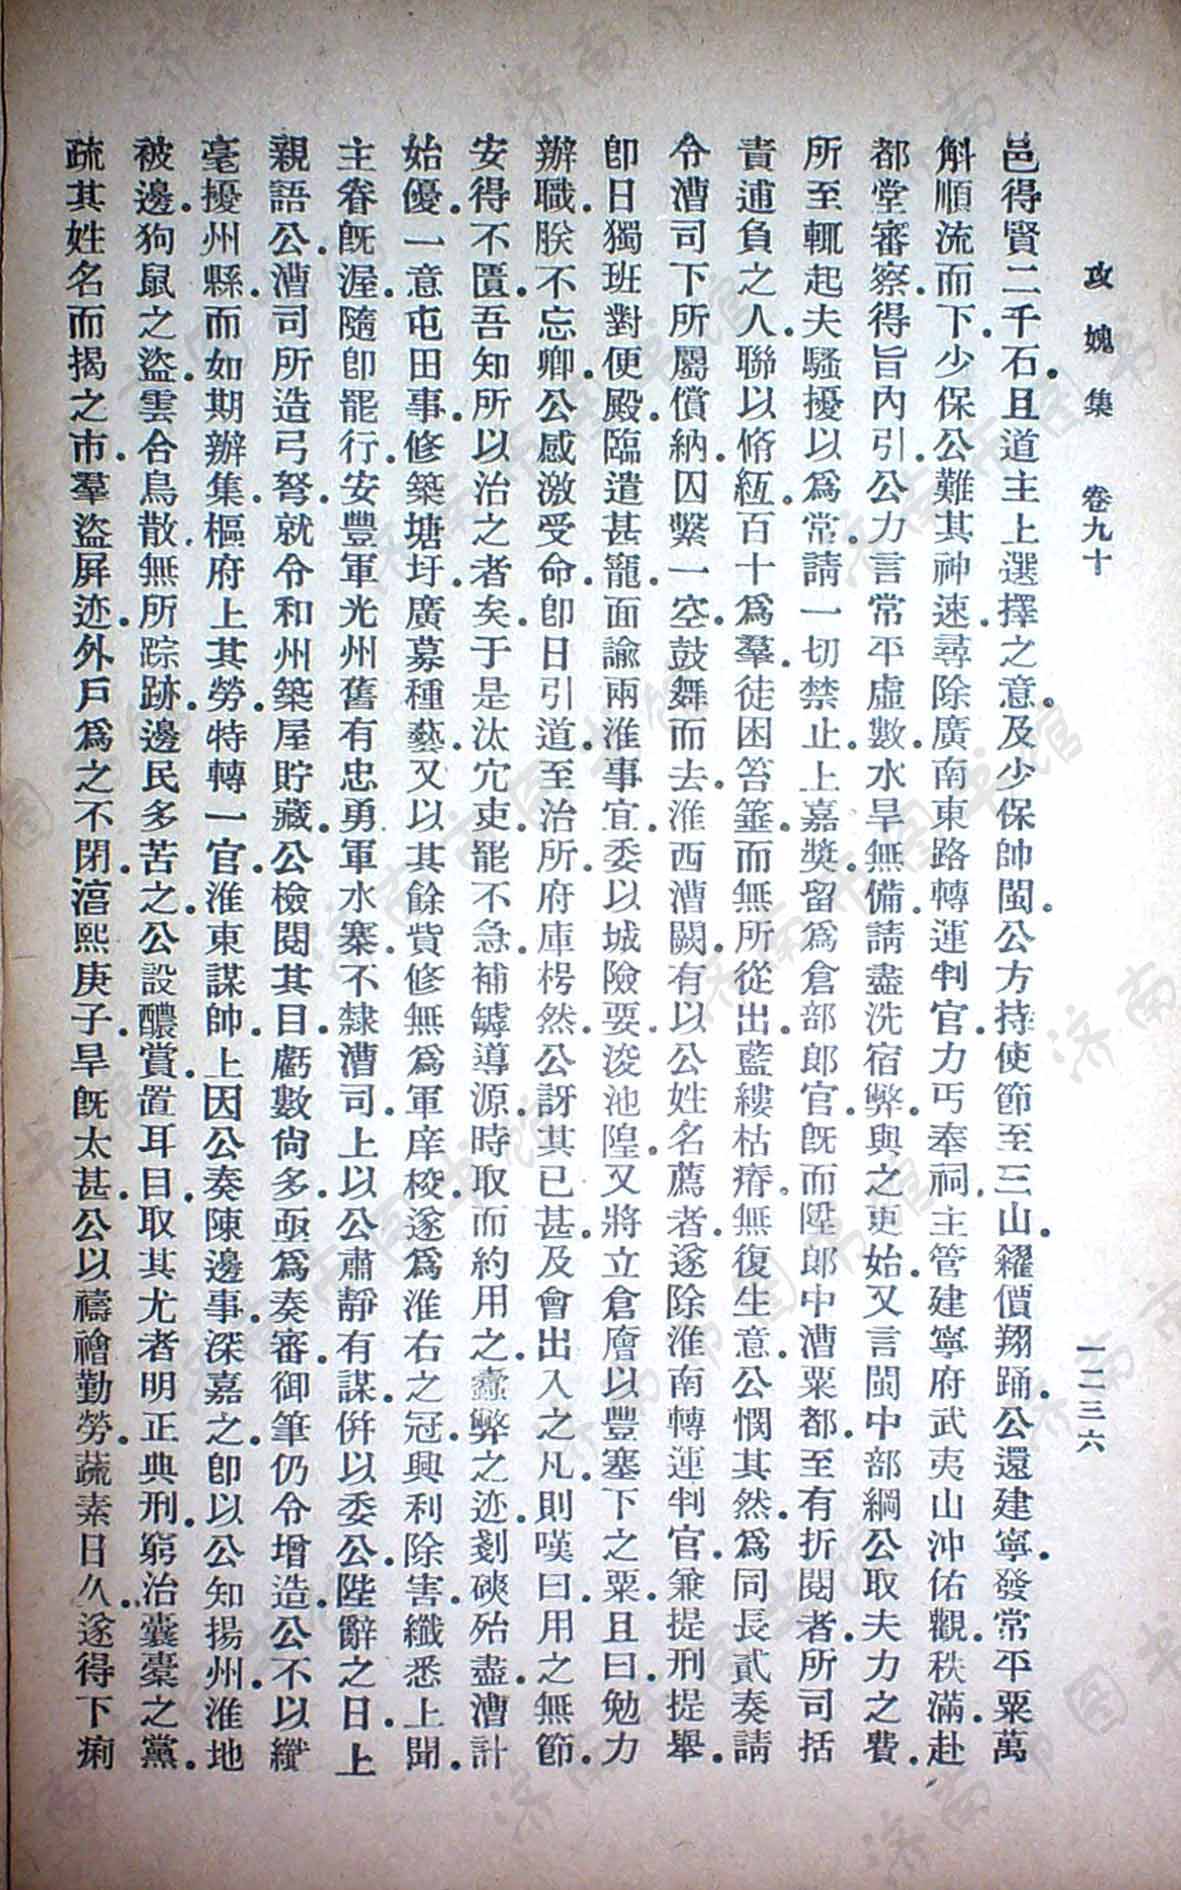 攻媿集　卷九十　一二三六
邑得賢二千石。且道主上選擇之意。及少保帥閩。公方持使節至三山。糴價翔踊。公還建寧。發常平粟萬
斛順流而下。少保公難其神速。尋除廣南東路轉運判官。力丐奉祠。主管建寧府武夷山沖佑觀。秩滿。赴
都堂審察。得旨內引。公力言常平虛數。水旱無備。請盡洗宿弊。與之更始。又言閩中部綱。公取夫力之費。
所至輒起夫騷擾以爲常。請一切禁止。上嘉獎。留爲倉部郎官。旣而陞郎中。漕粟都。至有折閱者。所司括
責逋負之人。聯以脩緪。百十爲羣。徒困笞箠。而無所從出。藍縷枯瘠。無復生意。公憫其然。爲同長貳奏請
令漕司下所屬償納。囚繫一空。鼓舞而去。淮西漕闕。有以公姓名薦者。遂除淮南轉運判官。兼提刑提舉。
卽日獨班對便殿。臨遣甚寵。面諭兩淮事宜。委以城險要。浚池隍。又將立倉廥以豐塞下之粟。且曰。勉力
辦職。朕不忘卿。公感激受命。卽日引道。至治所。府庫枵然。公訝其已甚。及會出入之凡。則嘆曰。用之無節。
安得不匱。吾知所以治之者矣。于是汰宂吏。罷不急。補罅導源。時取而約用之。蠹弊之迹。剗磢殆盡。漕計
始優。一意屯田事。修築塘圩。廣募種藝。又以其餘貲修無爲軍庠校。遂爲淮右之冠。興利除害。纖悉上聞。
主眷旣渥。隨卽罷行。安豐軍光州舊有忠勇軍水寨。不隸漕司。上以公肅靜有謀。併以委公。陛辭之日。上
親語公。漕司所造弓弩。就令和州築屋貯藏。公檢閱其目。虧數尙多。亟爲奏審。御筆仍令增造。公不以纖
毫擾州縣。而如期辦集。樞府上其勞。特轉一官。淮東謀帥。上因公奏陳邊事。深嘉之。卽以公知揚州。淮地
被邊。狗鼠之盜。雲合鳥散。無所踪跡。邊民多苦之。公設醲賞。置耳目。取其尤者。明正典刑。窮治囊橐之黨。
疏其姓名而揭之市。羣盜屏迹。外戶爲之不閉。湻熙庚子。旱旣太甚。公以禱禬勤勞。蔬素日久。遂得下痢